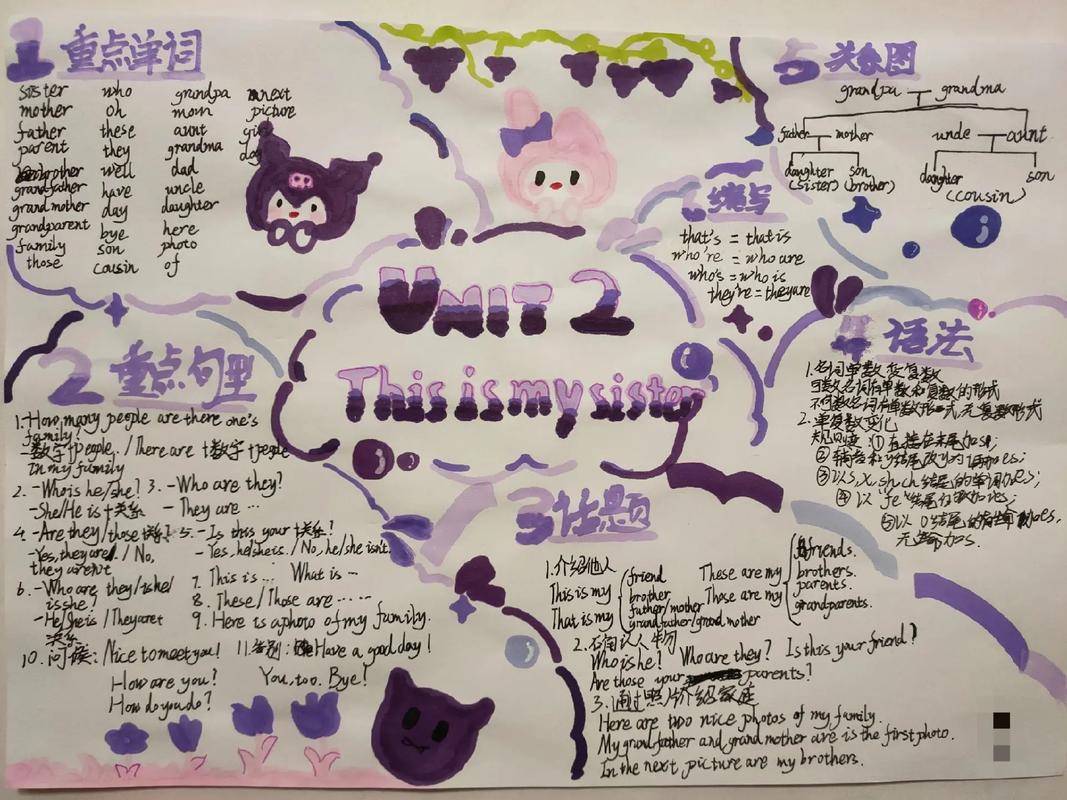 1 重点单词
sister who grandpa next
mother oh mom picture
father these aunt
parent they grandma
brother well dad
grandfather have uncle
grandmother day daughter
grandparent bye here
family son photo
those cousin of
UNIT 2
This is my sister
5
grandpa grandma
father mother uncle aunt
daughter son daughter son
(sister) (brother) (cousin)
缩写
that's = that is
who're = who are
who's = who is
they're = they are
2 重点句型
1. How many people are there one's
family?
- 数字+people. / There are +数字+people
in my family
2. - Who is he/she? 3. - Who are they?
- She/He is +关系 - They are ...
4. - Are they/those +关系? 5. - Is this your +关系?
- Yes, they are. / No, - Yes, he/she is. / No, he/she isn't.
they aren't
6. - Who are they/is he/ 7. This is ... What is ...
is she? 8. These/Those are ......
- He/She is / They are+ 9. Here is a photo of my family.
关系
10. 问候: Nice to meet you! 11. 告别: Have a good day!
How are you? You, too. Bye!
How do you do?
3 话题
1. 介绍他人
This is my friend These are my friends.
brother Those are my brothers.
That is my father/mother parents.
grandfather/grandmother grandparents.
2. 人物
Who is he? Who are they? Is this your friend?
Are those your parents?
3. 通过照片介绍家庭
Here are two nice photos of my family.
My grandfather and grandmother are is the first photo.
In the next picture are my brothers.
4 语法
1. 名词单数变复数
可数名词有单数和复数的形式
不可数名词有单数形式,无复数形式
2. 单复数变化
①直接在末尾加s;
②辅音和y结尾改y为i再加es;
③以s,x,sh,ch结尾的单词加es;
④以"fe"结尾
⑤以o结尾的有生命加es,
无生命加s.